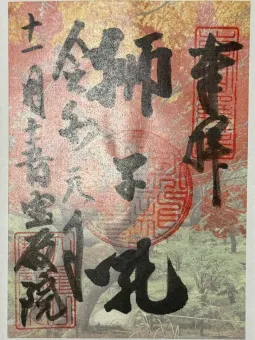 奉拝
獅子吼
令和元年
十一月
宝厳院